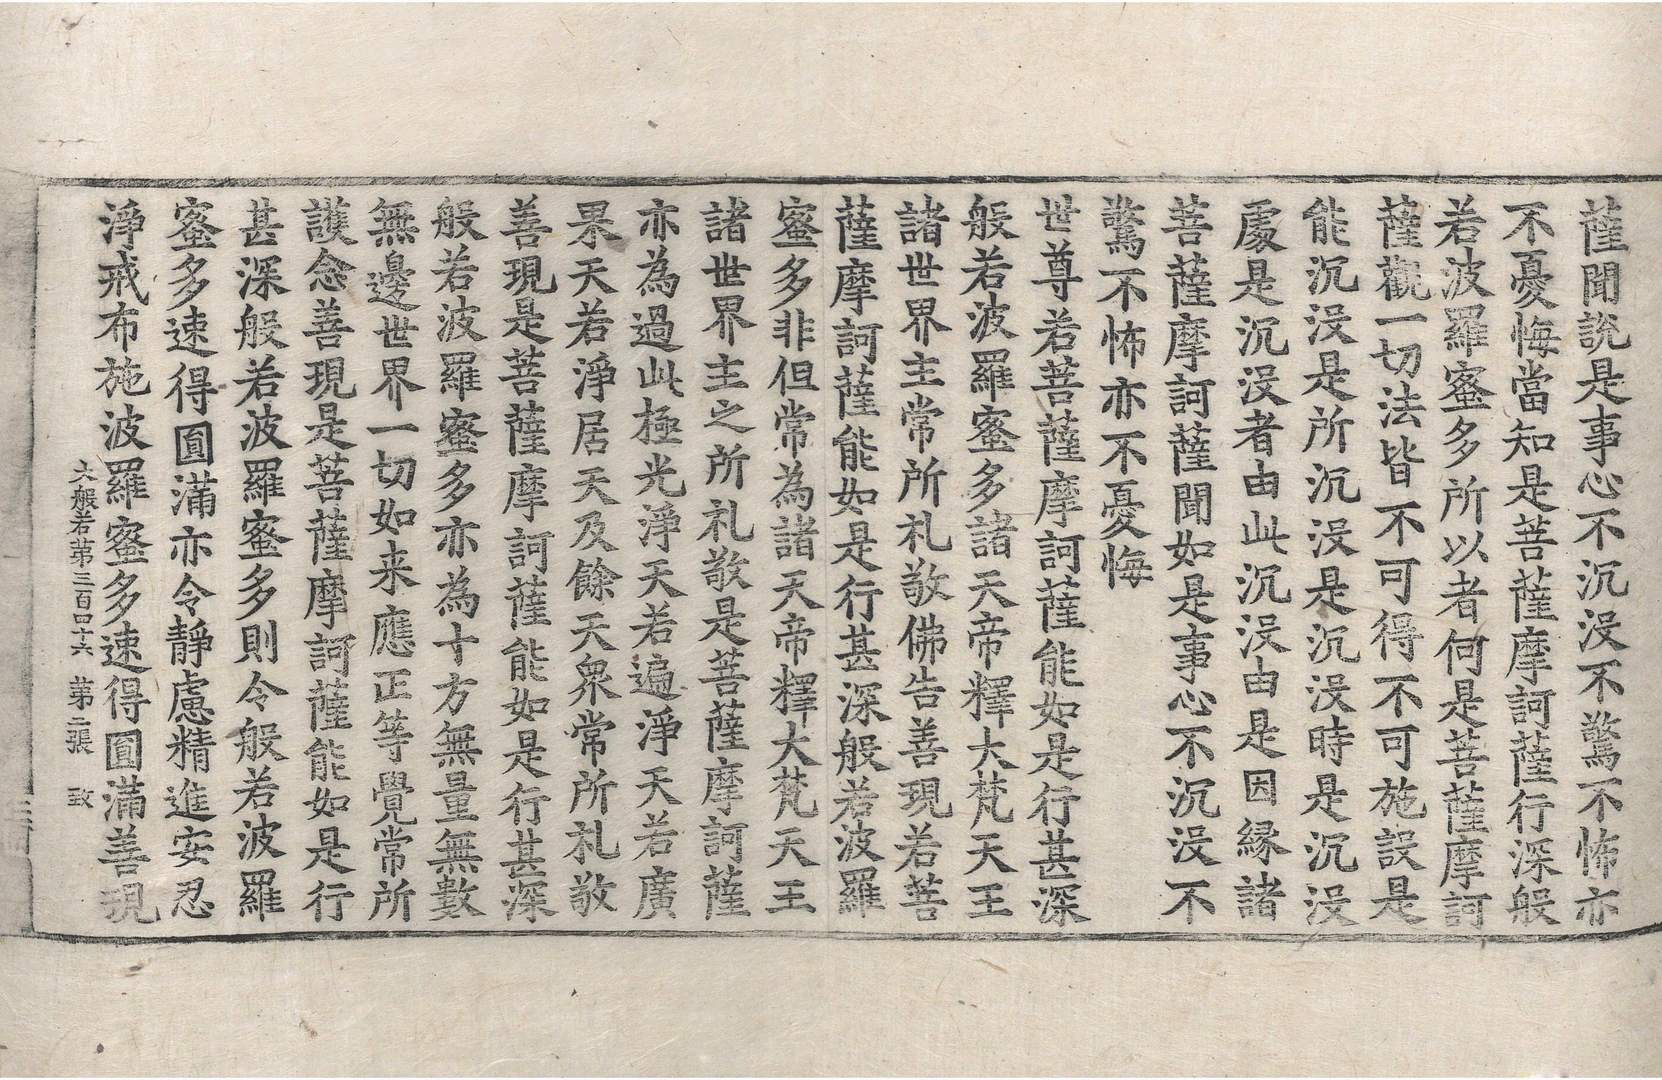 薩聞說是事心不沉沒不驚不怖亦
不憂悔當知是菩薩摩訶薩行深般
若波羅蜜多所以者何是菩薩摩訶
薩觀一切法皆不可得不可施設是
能沉沒是所沉沒是沉沒時是沉沒
處是沉沒者由此沉沒由是因緣諸
菩薩摩訶薩聞如是事心不沉沒不
驚不怖亦不憂悔
世尊若菩薩摩訶薩能如是行甚深
般若波羅蜜多諸天帝釋大梵天王
諸世界主常所礼敬佛告善現若菩
薩摩訶薩能如是行甚深般若波羅
蜜多非但常為諸天帝釋大梵天王
諸世界主之所礼敬是菩薩摩訶薩
亦為過此極光淨天若遍淨天若廣
果天若淨居天及餘天衆常所礼敬
善現是菩薩摩訶薩能如是行甚深
般若波羅蜜多亦為十方無量無數
無邊世界一切如来應正等覺常所
護念善現是菩薩摩訶薩能如是行
甚深般若波羅蜜多則令般若波羅
蜜多速得圓滿亦令靜慮精進安忍
淨戒布施波羅蜜多速得圓滿善現
大般若第三百四十六 第二張 致